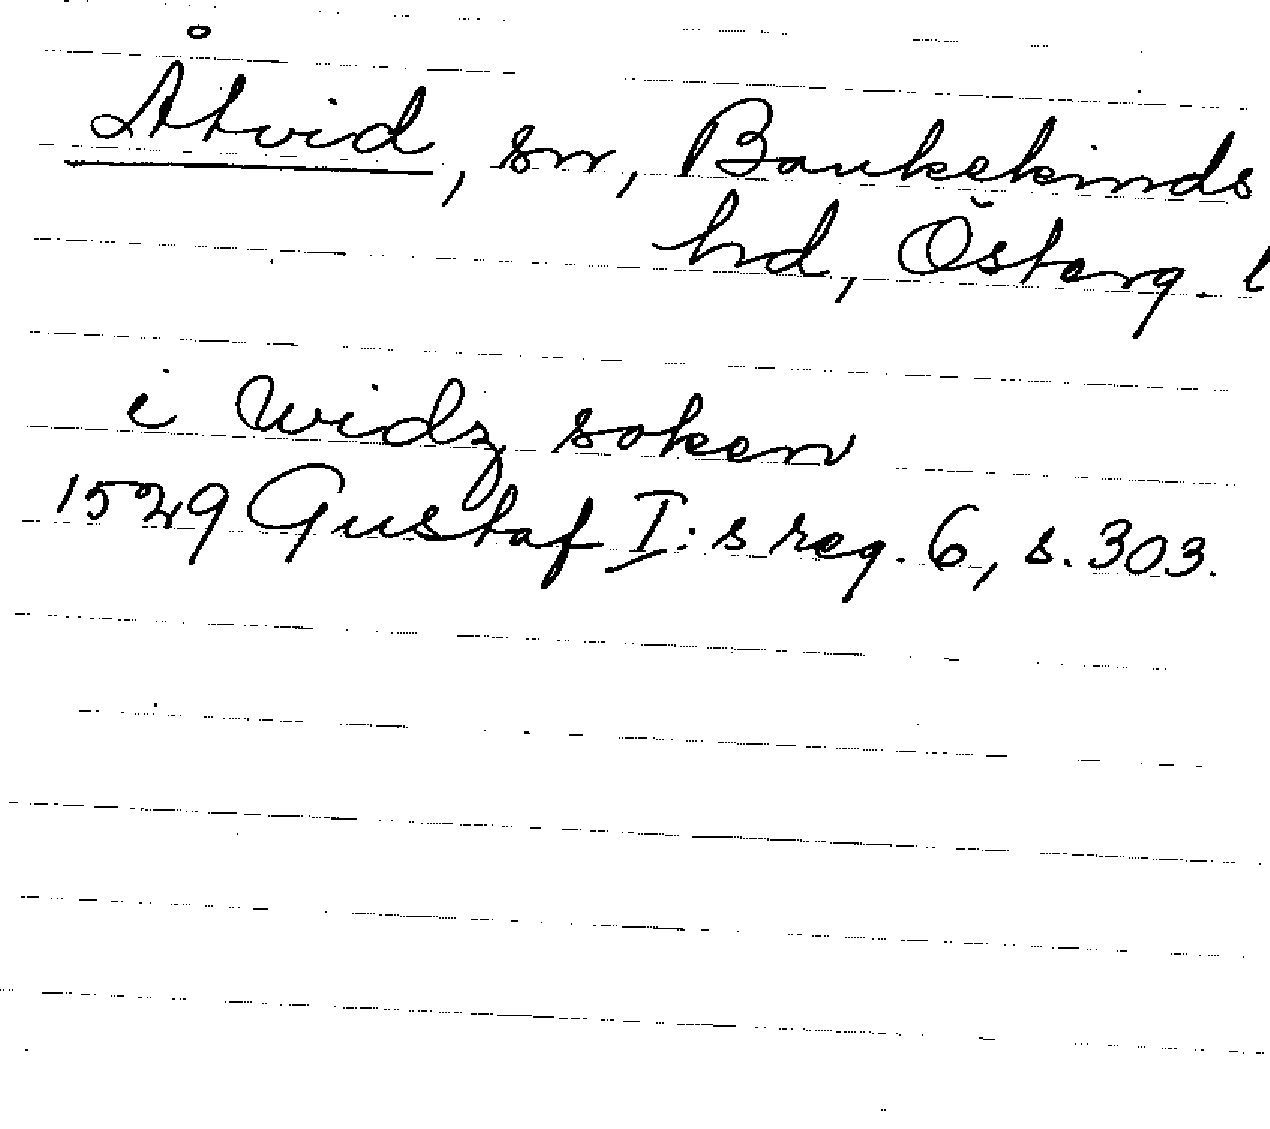 Åtvid, sn, Bankekinds
hd, Österg. l
i widz soken
1529 Gustaf I:s reg. 6, s. 303.